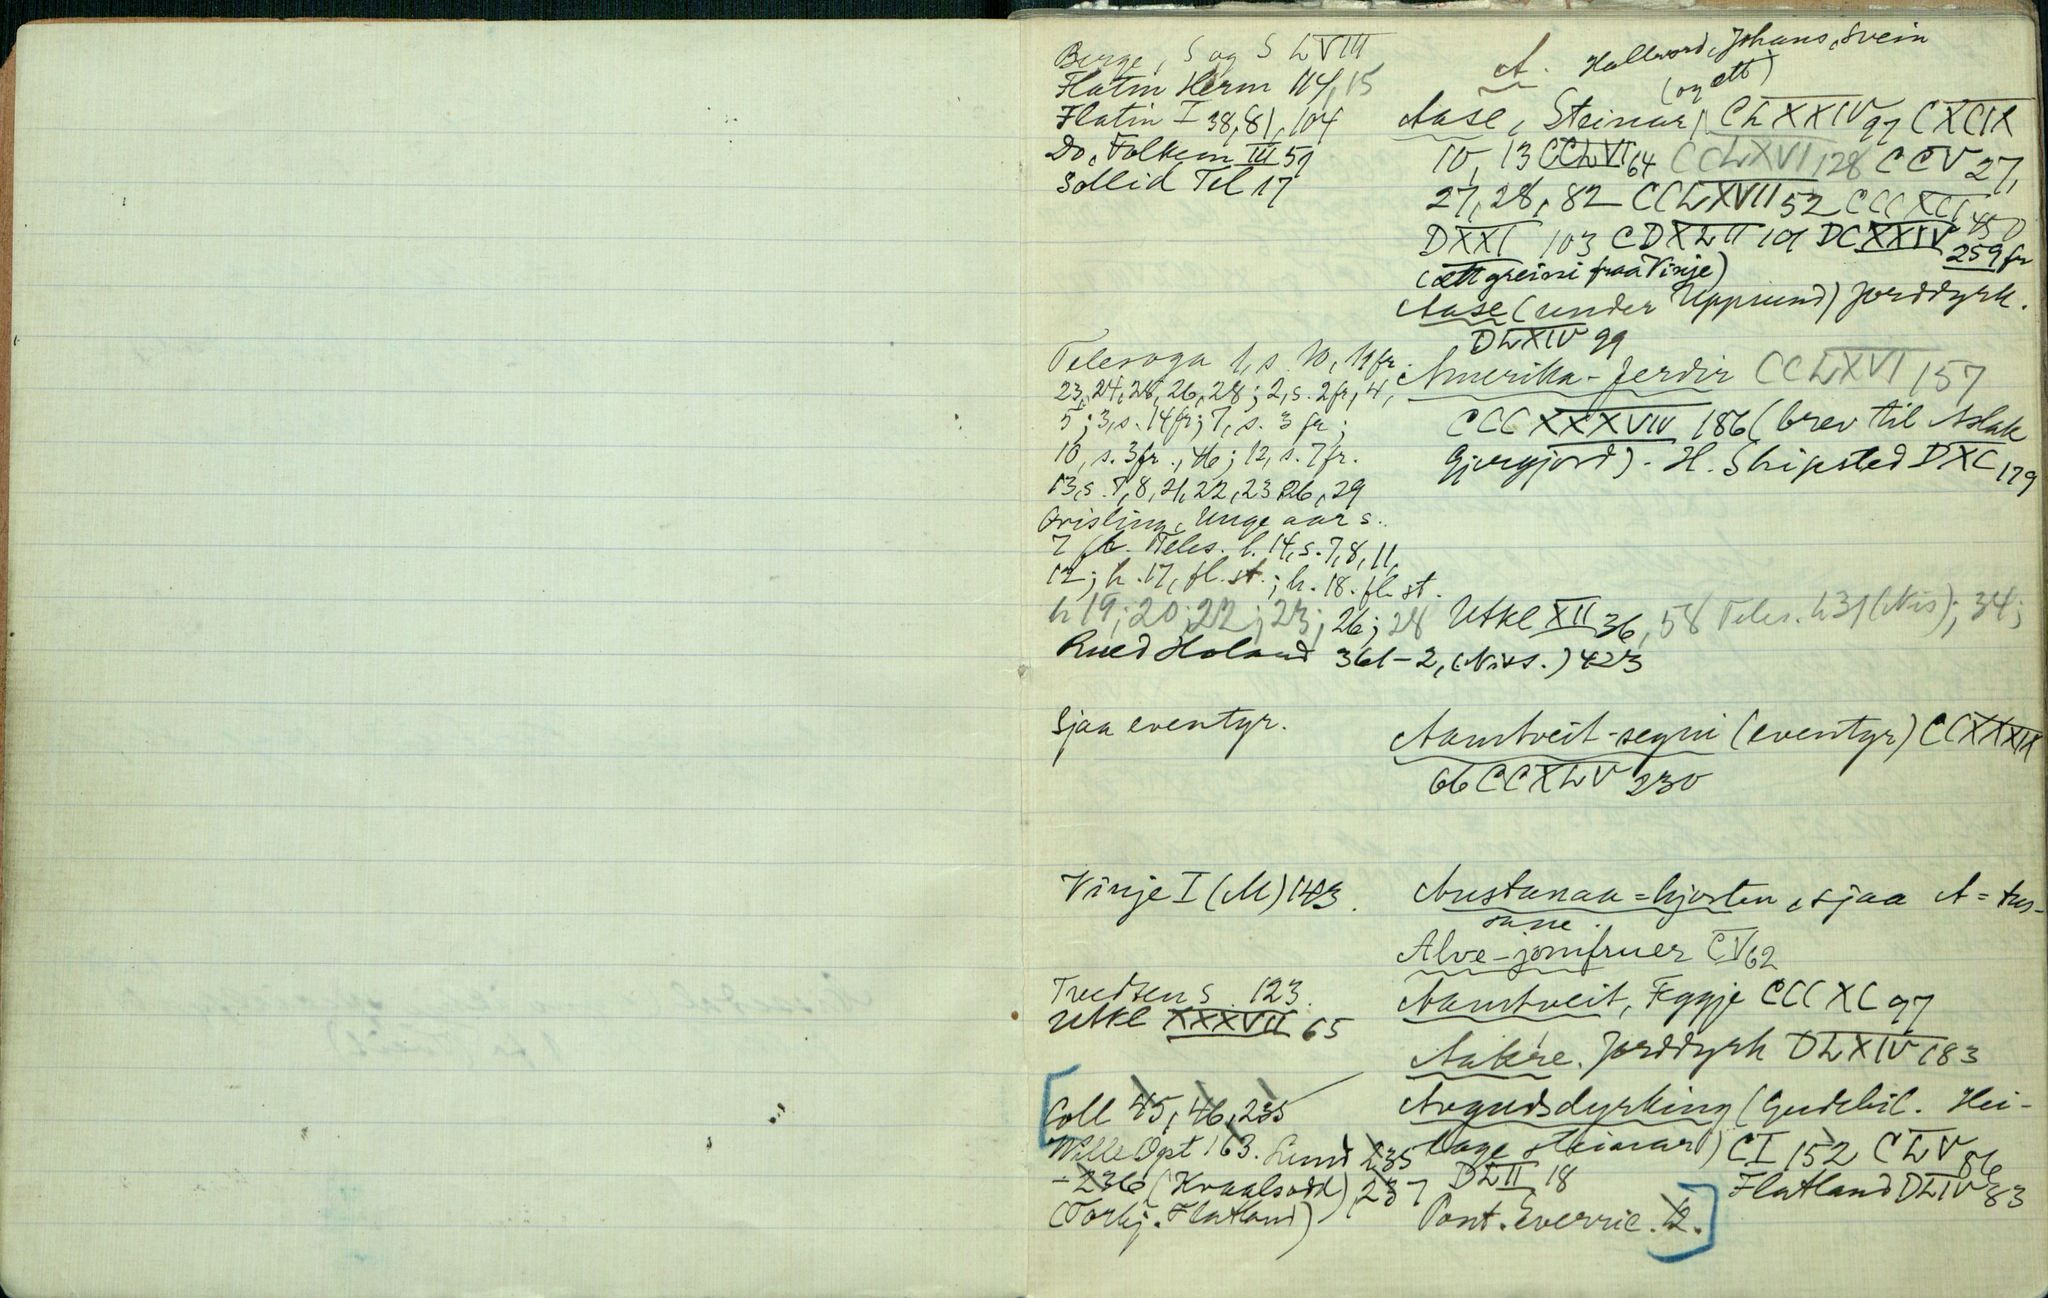 Berge, S og S LVIII
Flatin Herm 114, 15
Flatin I 38, 81, 104
Do, Folkem III 57
Sollid Tel 17
A. Hallvord, Johans, Svein
(og ætt)
Aase, Steinar, CLXXIV 97 CXCIX
10, 13 CCLVI 64 CCLXVI 128 CCV 27,
27, 28, 82 CCLXVII 52 CCCXCI 450
DXXI 103 CDXLII 101 DCXXIV 259 fr
(ættgreini fraa Vinje)
Aase (under Uppsund) Jorddyrk.
DLXIV 99
Telesoga 1, s. 10, 19 fr.
23, 24, 25, 26, 28; 2, s. 2 fr, 4,
5; 3, s. 14 fr; 7, s. 3 fr;
10, s. 3 fr., 46; 12, s. 7 fr.
13, s. 7, 8, 21, 22, 23, 26, 29
Qvisling, Unge aar s.
7 fr. Teles. h. 14, s. 7, 8, 11,
12; h. 17, fl. st.; h. 18. fl. st.
h 19; 20; 22; 23; 26; 28 Utkl XII 36, 58 Teles. h 31 (Nis); 34;
Rued Holand 361-2, (Niss.) 423
Amerika-ferdir CCLXVI 157
CCCXXXVIII 186 (brev til Aslak
Gjergjord) - H. Skipsted DXC 179
Sjaa eventyr.
Aamtveit-segni (eventyr) CCXXXIX
66 CCXLV 230
Vinje I (M) 143.
Austanaa=hjorten, sjaa A=tus-
sane.
Alve-jomfruer CV 62
Tvedten s. 123.
Utkl XXXVII 65
Aamtveit, Eggje CCCXC 97
Aakre. Jorddyrk DLXIV 183
Coll 45, 46, 235
Wille Opt 163. Lund 235
-236 (Kraalsodd) 237
(Torbj. Flatland)
Avgudsdyrking (Gudebil. Hei-
lage steinar) CI 152 CLV 86
DLII 18 Flatland DLIV 83
Pont. Everric. 12.